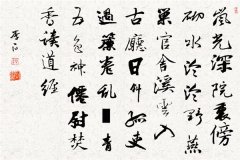 嵐光深院裏傍
砌水泠泠野燕
巢官舍溪雲入
古廳日斜孤吏
過簾卷乱青
五色神僊尉焚
香讀道經